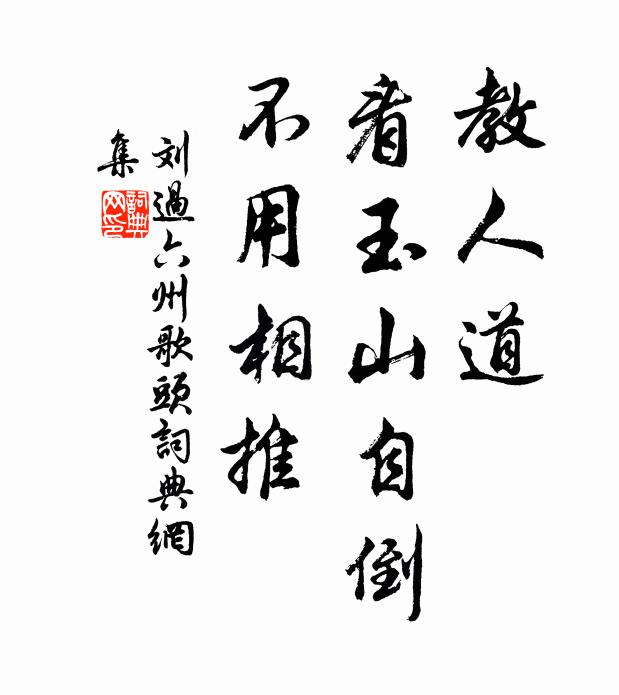 教人道
看玉山自倒
不用相推
刘過六州歌頭詞典網
集
詞典网印